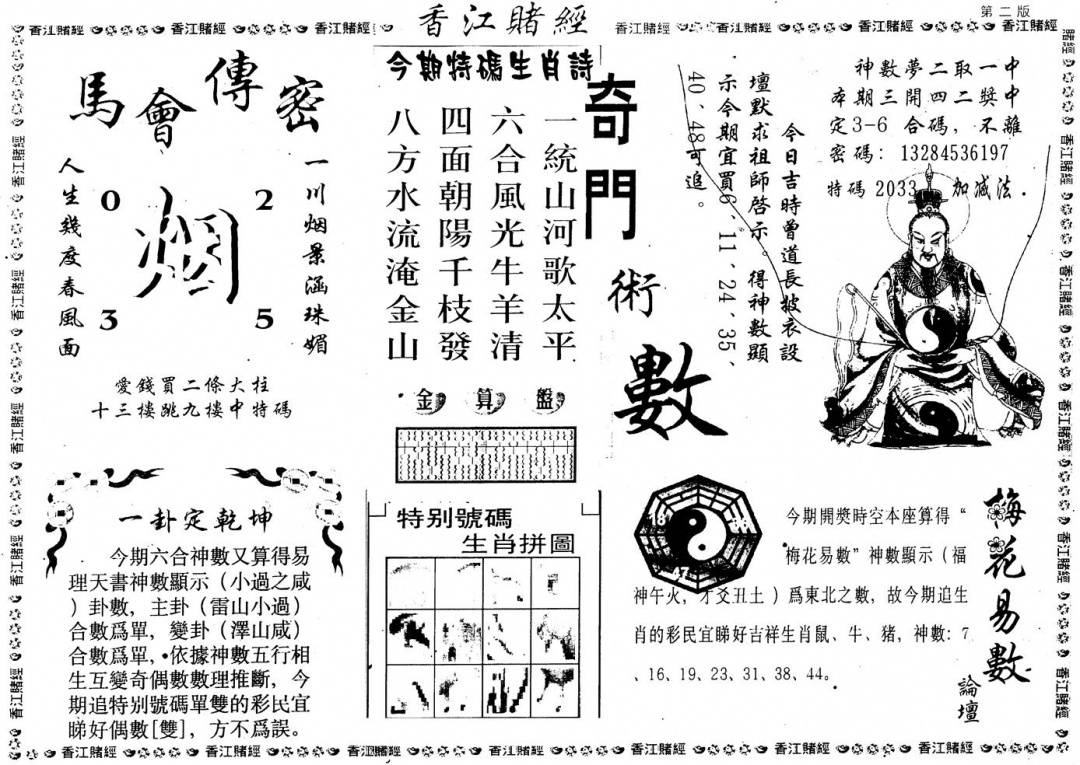 第二版
香江賭經
馬會傳密
一川烟景涵珠媚
人生幾度春風面
0 2
烟
3 5
愛錢買二條大柱
十三樓跳九樓中特碼
一卦定乾坤
今期六合神數又算得易
理天書神數顯示（小過之咸
）卦數，主卦（雷山小過）
合數爲單，變卦（澤山咸）
合數爲單，依據神數五行相
生互變奇偶數數理推斷，今
期追特别號碼單雙的彩民宜
睇好偶數[雙]，方不爲誤。
今期特碼生肖詩
一統山河歌太平
六合風光牛羊清
四面朝陽千枝發
八方水流淹金山
金算盤
特别號碼
生肖拼圖
奇門術數
今日吉時曾道長披衣設
壇默求祖師啓示。得神數顯
示今期宜買6、11、24、35、
40、48可追。
神數夢二取一中
本期三開四二獎中
定3-6 合碼，不離
密碼：13284536197
特碼 2033 加减法.
梅花易數
論壇
今期開獎時空本座算得“
梅花易數”神數顯示（福
神午火，才爻丑土）爲東北之數，故今期追生
肖的彩民宜睇好吉祥生肖鼠、牛、猪，神數：7
、16、19、23、31、38、44。
香江賭經